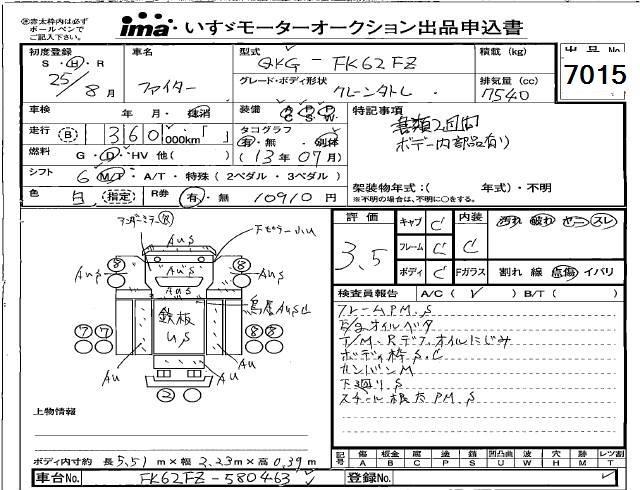 ㊟赤太枠内は必ず
ボールペンで
ご記入下さい。
ima いすゞモーターオークション出品申込書
出品No
7015
初度登録
S・H・R
25/8月
車名
ファイター
型式
QKG-FK62FZ
グレード・ボディ形状
クレーンタトし
積載(kg)
排気量(cc)
7540
車検
年 月・抹消
装備
特記事項
書類2週間
ボデー内部品有り
走行
360,000km
タコグラフ
有・無・別体
(13年07月)
燃料
G・D・HV 他( )
シフト
6 MT・A/T・特殊(2ペダル・3ペダル)
色
白 (指定)
R券
有・無 10910円
架装物年式:( 年式)・不明
※不明の場合は、不明に○をする。
アンダーミラーR
AuS
鉄板
uS
鳥居AuS凹
Au
上物情報
ボディ内寸約 長5.51m×幅2.23m×高0.39m
車台No.
FK62FZ-580463
登録No.
評価
3.5
キャブ C
フレーム C
ボディ C
内装 C
Fガラス
汚れ 破れ ヤニ スレ
割れ 線 点傷 イバリ
検査員報告 A/C( ✓ ) B/T( )
フレームPM.S
E/gオイルベタ
T/M・Rデフオイルにじみ
ボディ枠S.C
カンバンM
下廻りS
スチール根太PM.S
記号
傷 板金 腐 塗 錆 凹凸曲 波 穴 跡 レツ割
A B C P S U W H M T